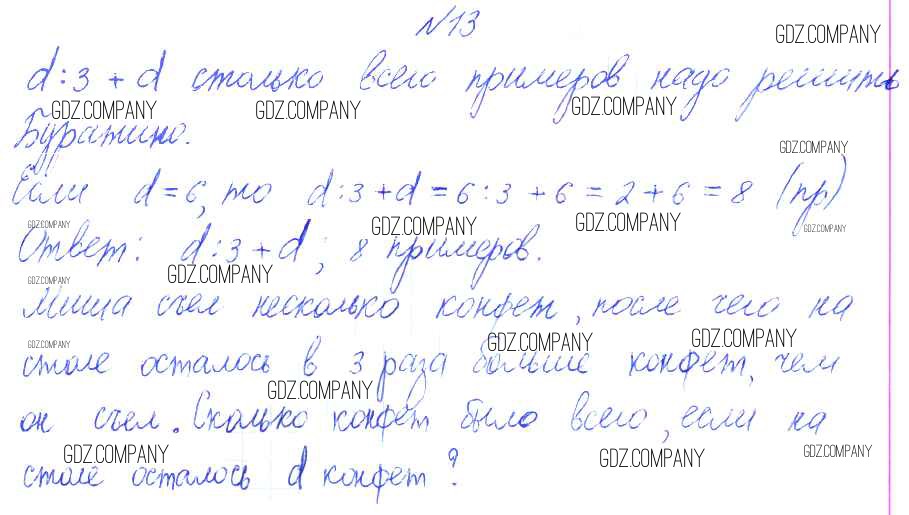 №13
GDZ.COMPANY
d:3+d столько всего примеров надо решить
GDZ.COMPANY GDZ.COMPANY GDZ.COMPANY
Буратино.
GDZ.COMPANY
Если d=6, то d:3+d=6:3+6=2+6=8 (пр)
GDZ.COMPANY GDZ.COMPANY GDZ.COMPANY GDZ.COMPANY
Ответ: d:3+d; 8 примеров.
GDZ.COMPANY
GDZ.COMPANY
Миша съел несколько конфет, после чего на
GDZ.COMPANY GDZ.COMPANY GDZ.COMPANY
столе осталось в 3 раза больше конфет, чем
GDZ.COMPANY
он съел. Сколько конфет было всего, если на
GDZ.COMPANY GDZ.COMPANY GDZ.COMPANY
столе осталось d конфет?